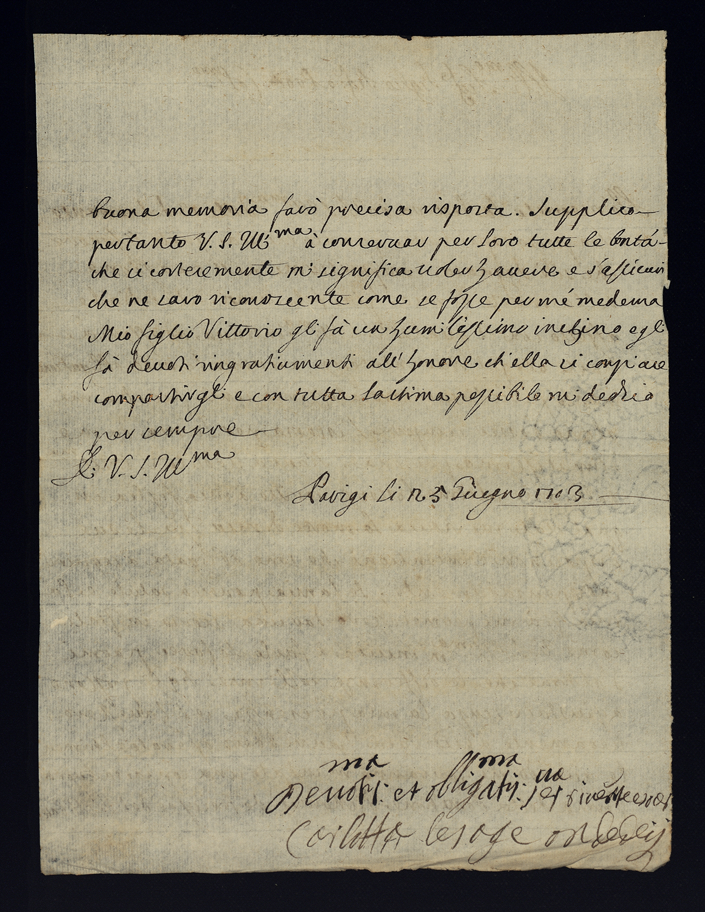 buona memoria farò precisa risposta. Supplico
pertanto V. S. Ill.ma à conservar per loro tutte le bontà
che si cortesemente mi significa voler havere e s'assicuri
che ne sarò riconoscente come se fosse per mé medema
Mio figlio Vittorio gli fà un humilissimo inchino e gli
fà devoti ringratiamenti all'honore ch'ella si compiace
compartirgli e con tutta la stima possibile mi dedico
per sempre
Di V. S. Ill.ma
Parigi li 25 Giugno 1703
Devotis:ma et obligatis:ma
Carlotta lesage